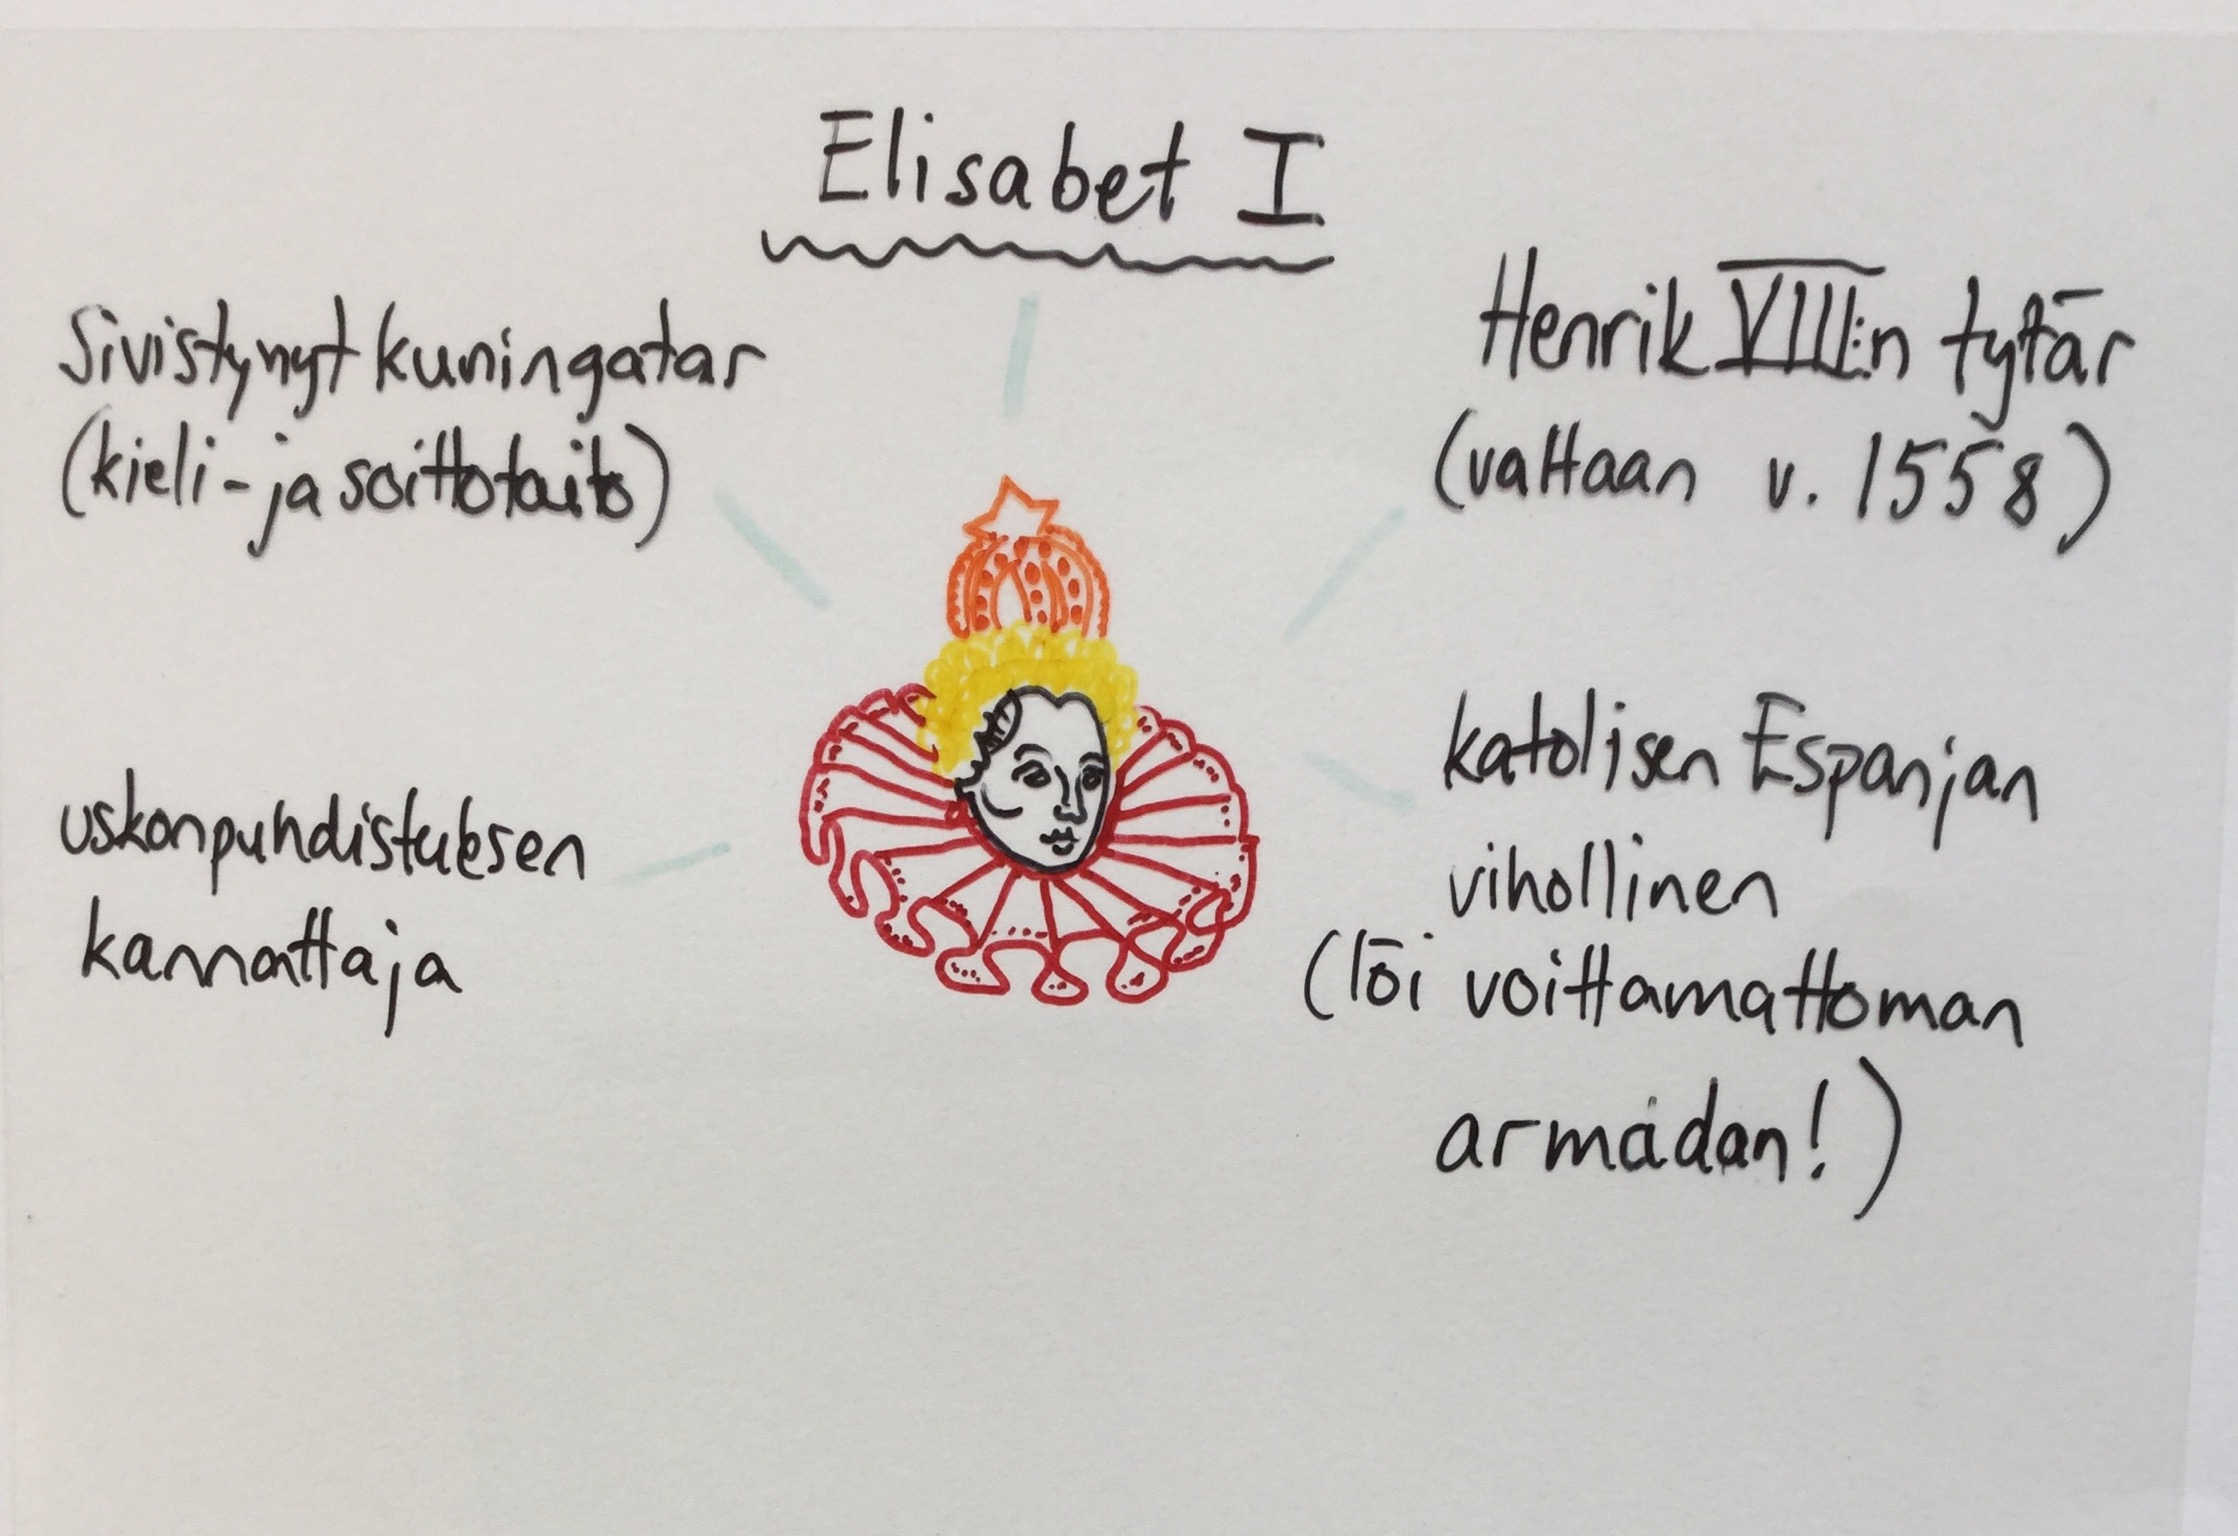 Elisabet I
Sivistynyt kuningatar
(kieli- ja soittotaito)
Henrik VIII:n tytär
(valtaan v. 1558)
uskonpuhdistuksen
kannattaja
katolisen Espanjan
vihollinen
(löi voittamattoman
armadan!)